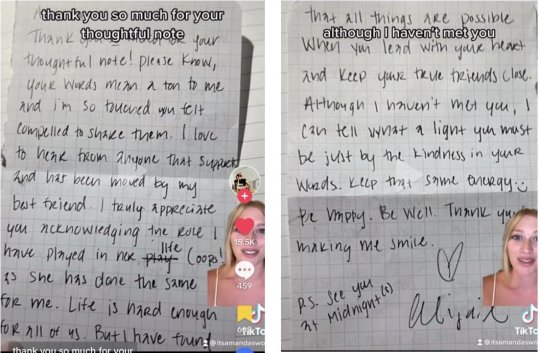 thank you so much for your
thoughtful note
Thank you so much for your
thoughtful note! Please know,
your words mean a ton to me
and i'm so touched you felt
compelled to share them. I love
to hear from anyone that supports
and has been moved by my
best friend. I truly appreciate
you acknowledging the role I
have played in her play life (oops!)
as she has done the same
for me. Life is hard enough
for all of us. But I have found
15.5K
459
TikTo
thank you so much for your
that all things are possible
although I haven't met you
When you lead with your heart
and keep your true friends close.
Although I haven't met you, I
can tell what a light you must
be just by the kindness in your
words. Keep that same energy :)
Be happy. Be well. Thank you
making me smile.
P.S. See you
at Midnight(s)
Abigail
TikTo
@itsamandaswo